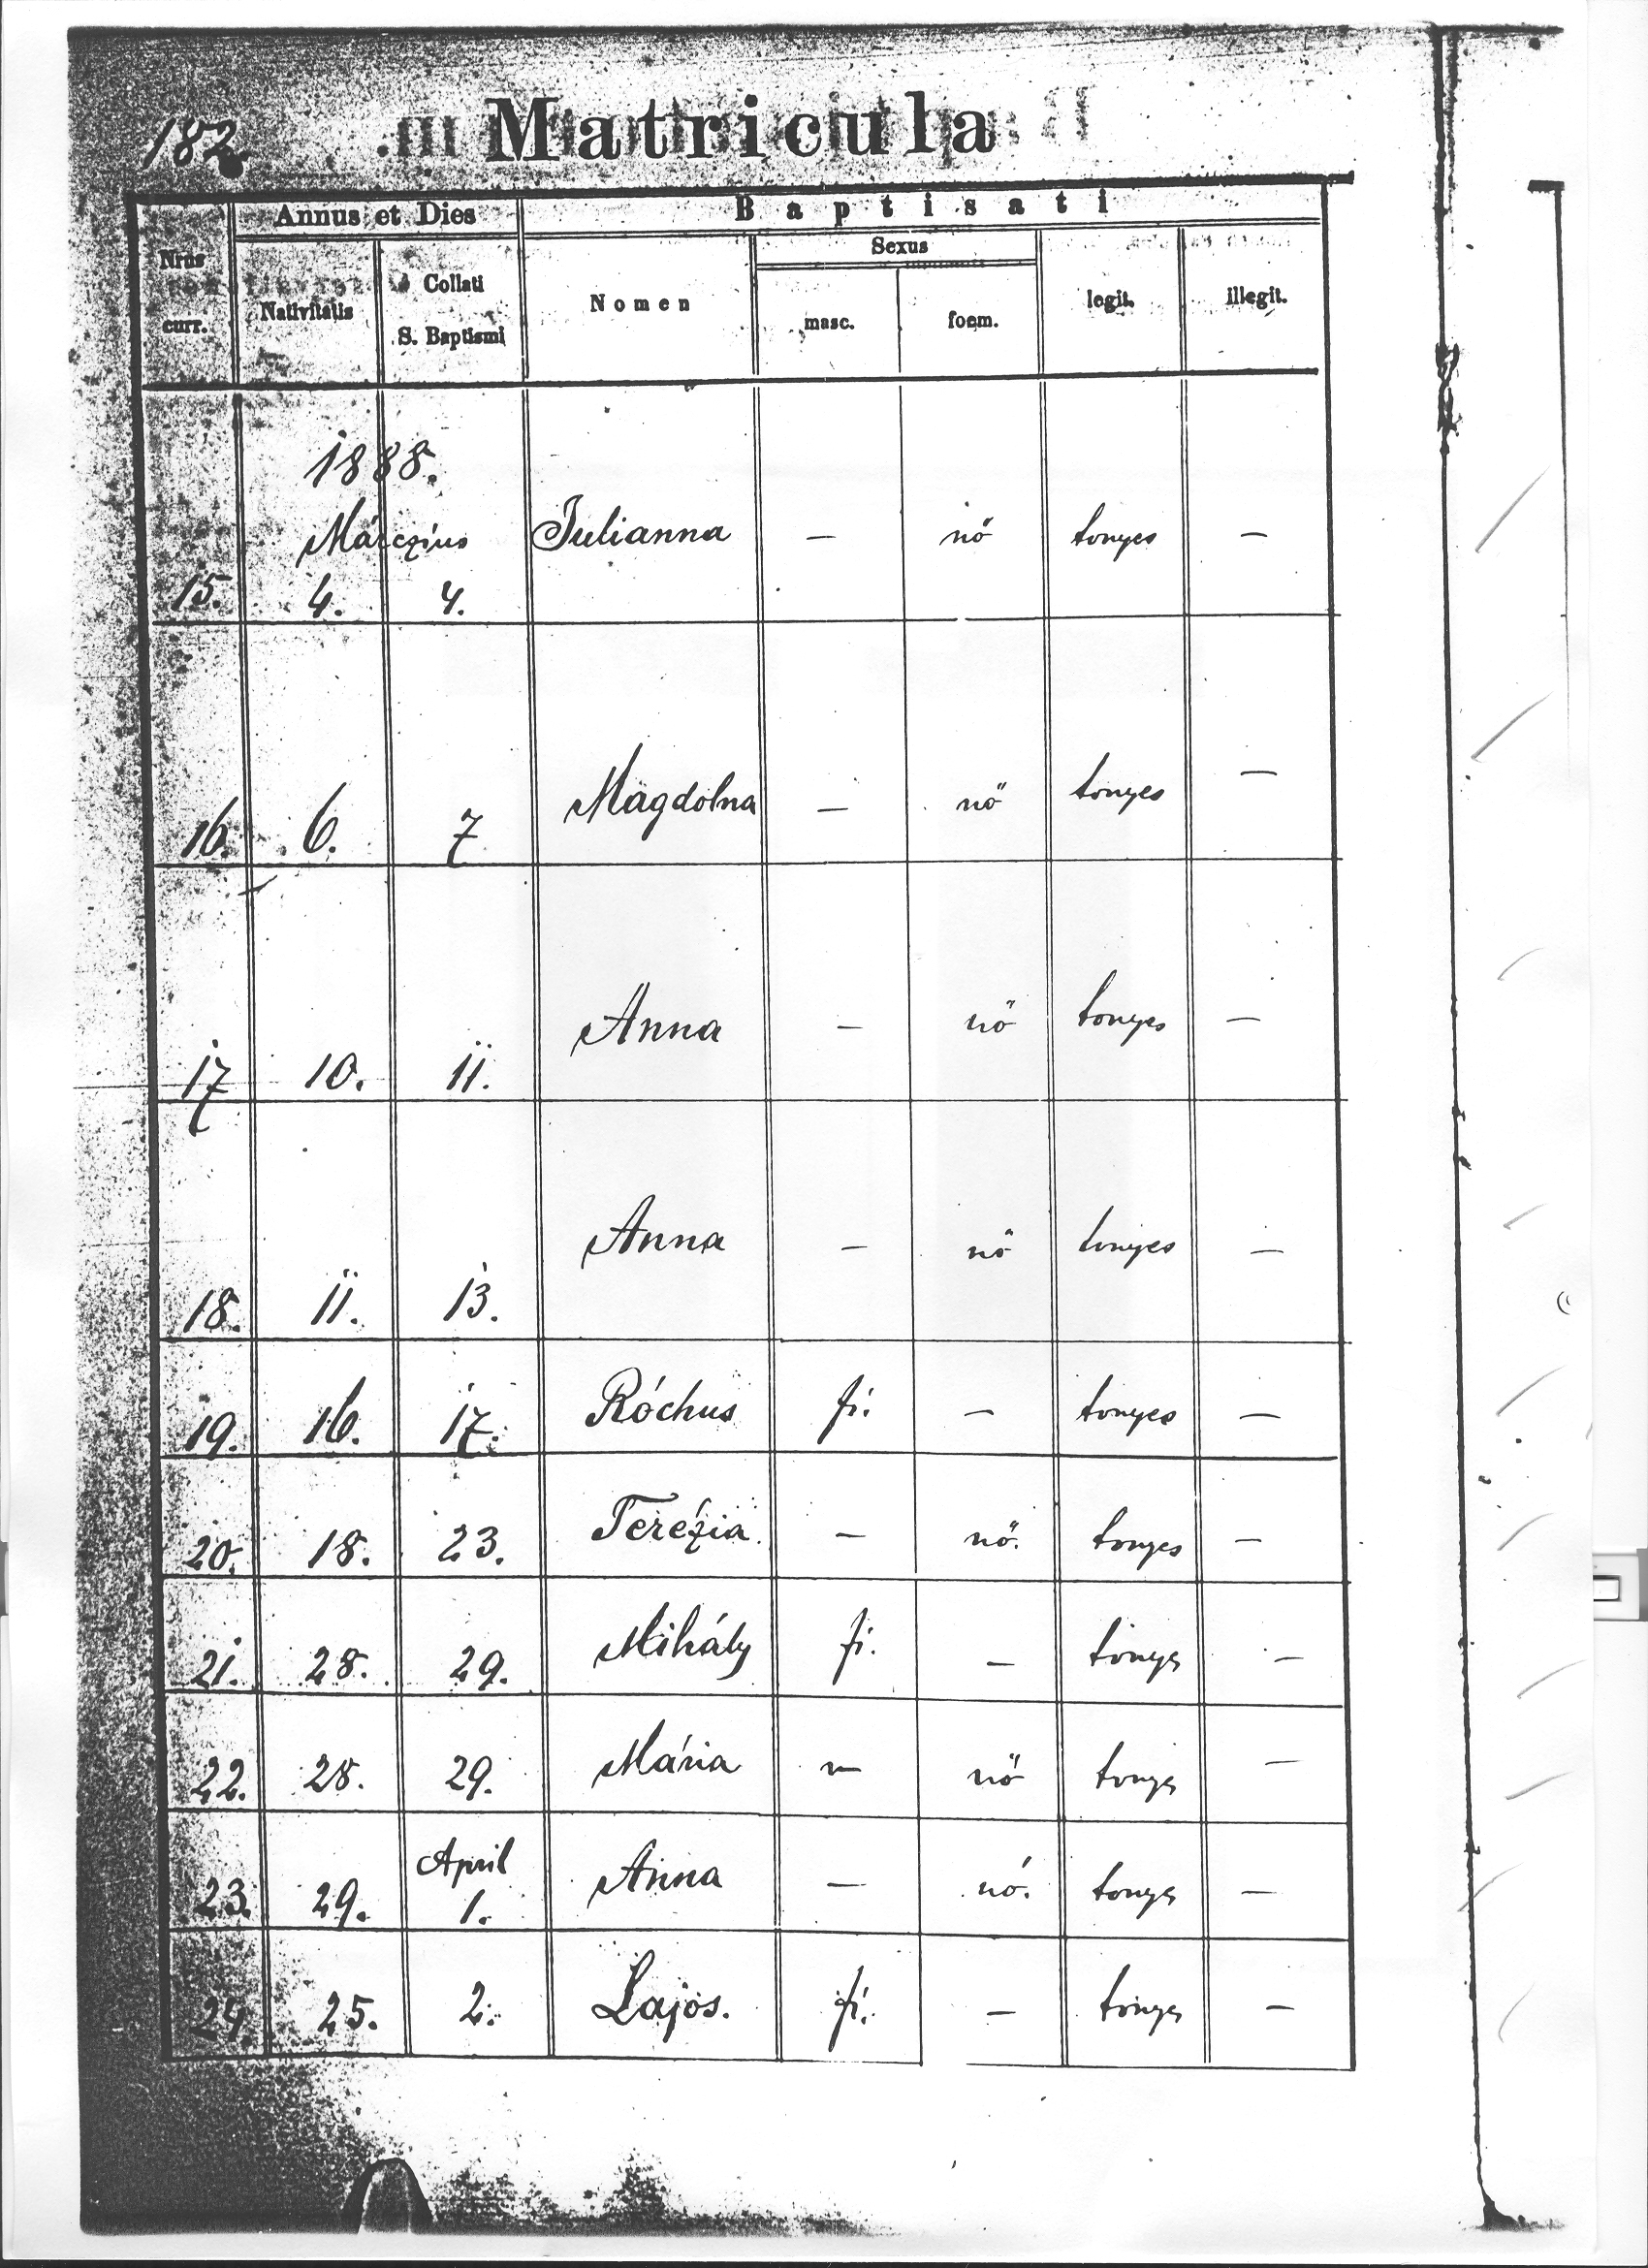 182.
Matricula
Annus et Dies
Baptisati
Nrus curr.
Nativitatis
Collati S. Baptismi
Nomen
Sexus
masc.
foem.
legit.
illegit.
1888.
Márczius
15. 4. 4. Julianna — nő tvnyes —
16. 6. 7 Magdolna — nő tvnyes —
17 10. 11. Anna — nő tvnyes —
18. 11. 13. Anna — nő tvnyes —
19. 16. 17. Róchus fi. — tvnyes —
20. 18. 23. Terézia — nő. tvnyes —
21. 28. 29. Mihály fi. — tvnyes —
22. 28. 29. Mária — nő tvnyes —
April
23. 29. 1. Anna — nő. tvnyes —
24. 25. 2. Lajos. fi. — tvnyes —